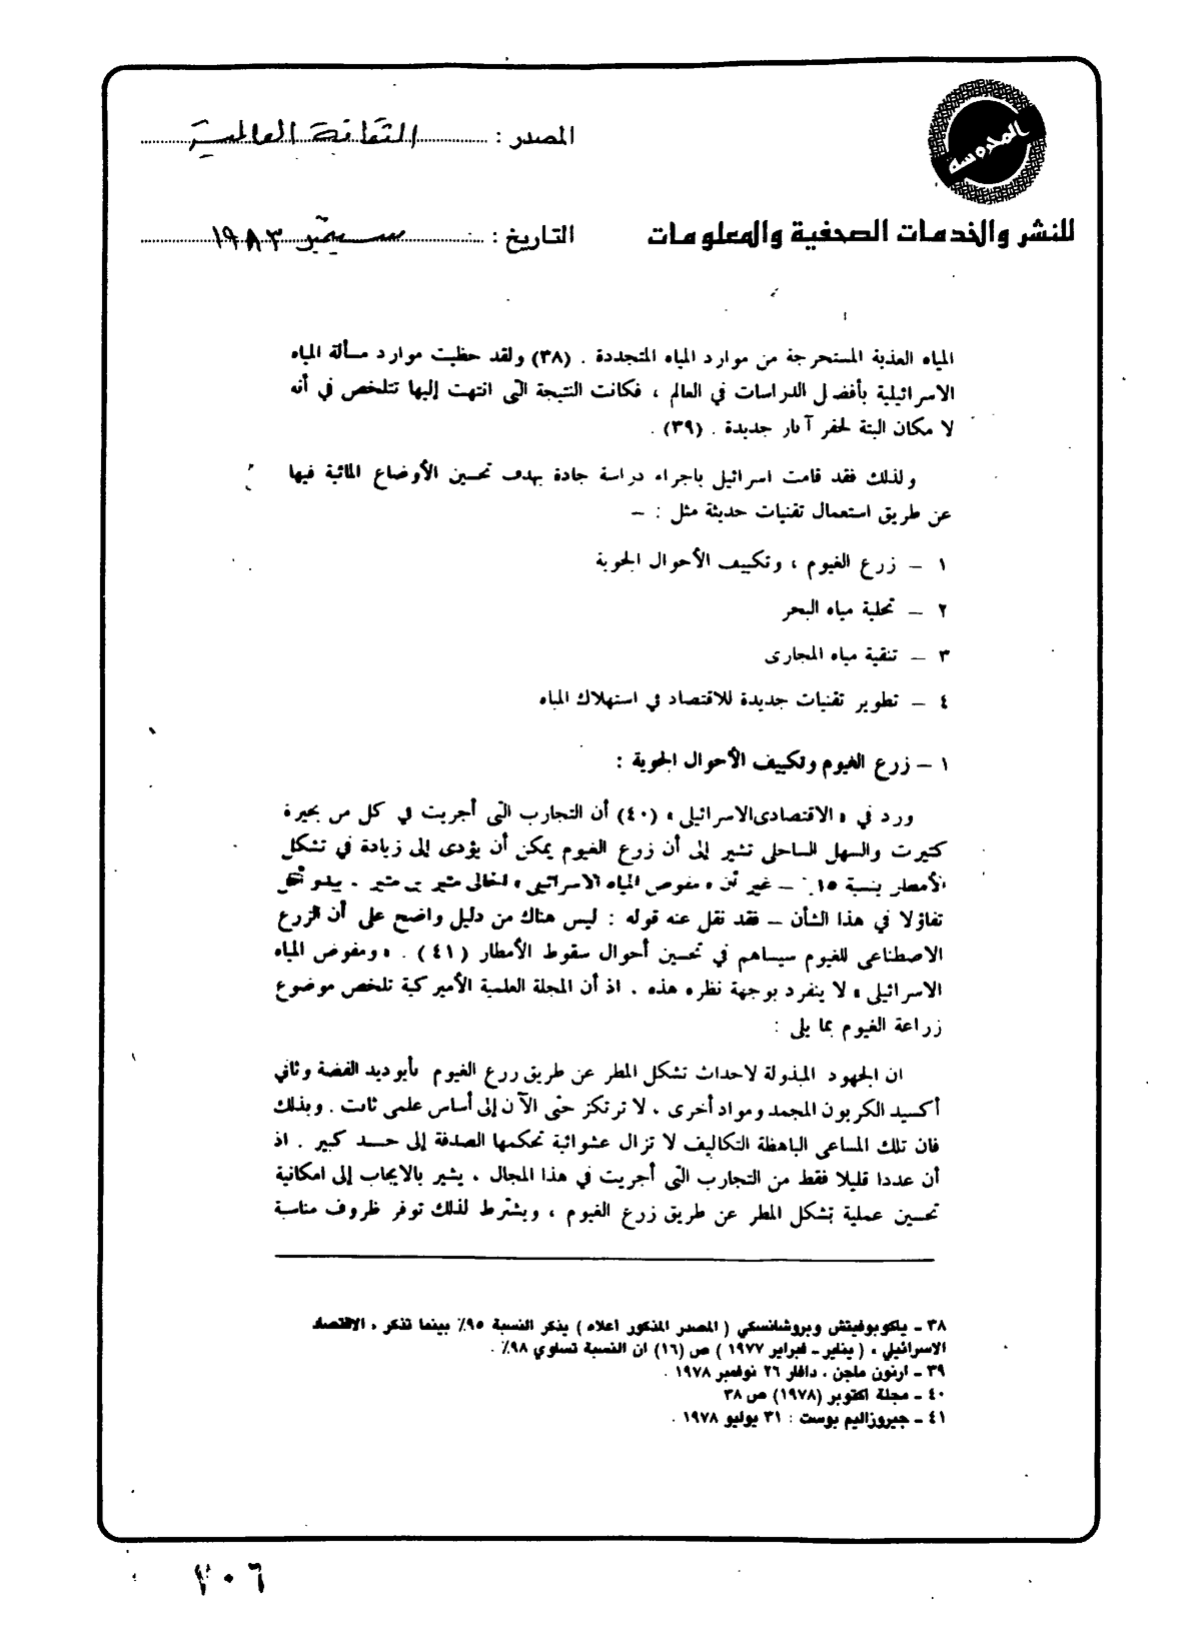 المحروسة
المصدر : الثقافة العالمية
للنشر والخدمات الصحفية والمعلومات
التاريخ : سبتمبر ١٩٨٣
المياه العذبة المستخرجة من موارد المياه المتجددة . (٣٨) ولقد حظيت موارد مسألة المياه
الاسرائيلية بأفضل الدراسات في العالم ، فكانت النتيجة التي انتهت إليها تتلخص في أنه
لا مكان البتة لحفر آبار جديدة . (٣٩) .
ولذلك فقد قامت اسرائيل باجراء دراسة جادة بهدف تحسين الأوضاع المائية فيها
عن طريق استعمال تقنيات حديثة مثل : –
١ – زرع الغيوم ، وتكييف الأحوال الجوية
٢ – تحلية مياه البحر
٣ – تنقية مياه المجارى
٤ – تطوير تقنيات جديدة للاقتصاد في استهلاك المياه
١ – زرع الغيوم وتكييف الأحوال الجوية :
ورد في « الاقتصادى الاسرائيلى » (٤٠) أن التجارب التى أجريت في كل من بحيرة
كنيرت والسهل الساحلى تشير إلى أن زرع الغيوم يمكن أن يؤدى إلى زيادة في تشكل
الأمطار بنسبة ١٥٪ – غير أن « مفوض المياه الاسرائيلى » الحالى مئير بن مئير . يبدو أقل
تفاؤلا في هذا الشأن – فقد نقل عنه قوله : ليس هناك من دليل واضح على أن الزرع
الاصطناعى للغيوم سيساهم في تحسين أحوال سقوط الأمطار (٤١) . « ومفوض المياه
الاسرائيلى » لا ينفرد بوجهة نظره هذه . اذ أن المجلة العلمية الأميركية تلخص موضوع
زراعة الغيوم بما يلى :
ان الجهود المبذولة لاحداث تشكل المطر عن طريق زرع الغيوم بأيوديد الفضة وثاني
أكسيد الكربون المجمد ومواد أخرى ، لا ترتكز حتى الآن إلى أساس علمى ثابت . وبذلك
فان تلك المساعى الباهظة التكاليف لا تزال عشوائية تحكمها الصدفة إلى حـــد كبير . اذ
أن عددا قليلا فقط من التجارب التى أجريت في هذا المجال ، يشير بالايجاب إلى امكانية
تحسين عملية تشكل المطر عن طريق زرع الغيوم ، ويشترط لذلك توفر ظروف مناسبة
٣٨ – ياكوبوفيتش وبروشانسكي ( المصدر المذكور اعلاه ) يذكر النسبة ٩٥٪ بينما تذكر ، الاقتصاد
الاسرائيلي ، ( يناير – فبراير ١٩٧٧ ) ص (١٦) ان النسبة تساوي ٩٨٪ .
٣٩ – ارنون ماجن ، دافار ٢٦ نوفمبر ١٩٧٨ .
٤٠ – مجلة اكتوبر (١٩٧٨) ص ٣٨
٤١ – جيروزاليم بوست : ٣١ يوليو ١٩٧٨ .